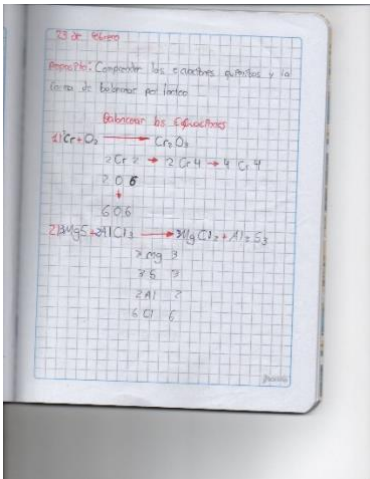 23 de febrero
Proposito: Comprender las ecuaciones químicas y la
forma de balancear por tanteo
Balancear las Ecuaciones
1) Cr + O2 → Cr2O3
2 Cr 2 → 2 Cr 4 → 4 Cr 4
2 O 6
↓
6 O 6
2) 3MgS + 2AlCl3 → 3MgCl2 + Al2S3
3 mg 3
3 S 3
2 Al 2
6 Cl 6